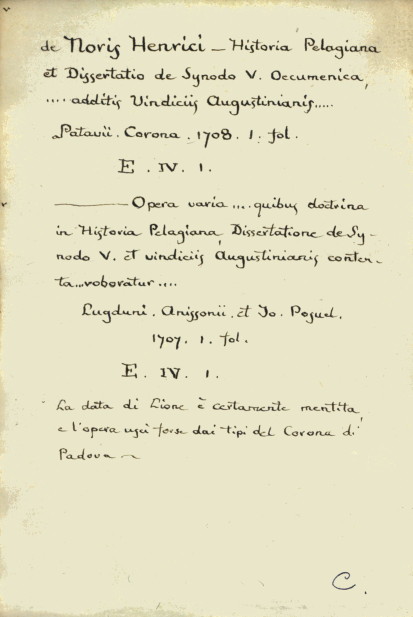 de Noris Henrici — Historia Pelagiana
et Dissertatio de Synodo V. Oecumenica,
.... additis Vindiciis Augustinianis.....
Patavii. Corona. 1708. 1. fol.
E. IV. 1.
——— Opera varia .... quibus doctrina
in Historia Pelagiana, Dissertatione de Sy-
nodo V. et vindiciis Augustinianis conten-
ta...roboratur....
Lugduni. Anissonii. et Jo. Posuel.
1707. 1. fol.
E. IV. 1.
La data di Lione è certamente mentita,
e l'opera uscì forse dai tipi del Corona di
Padova ~
C.